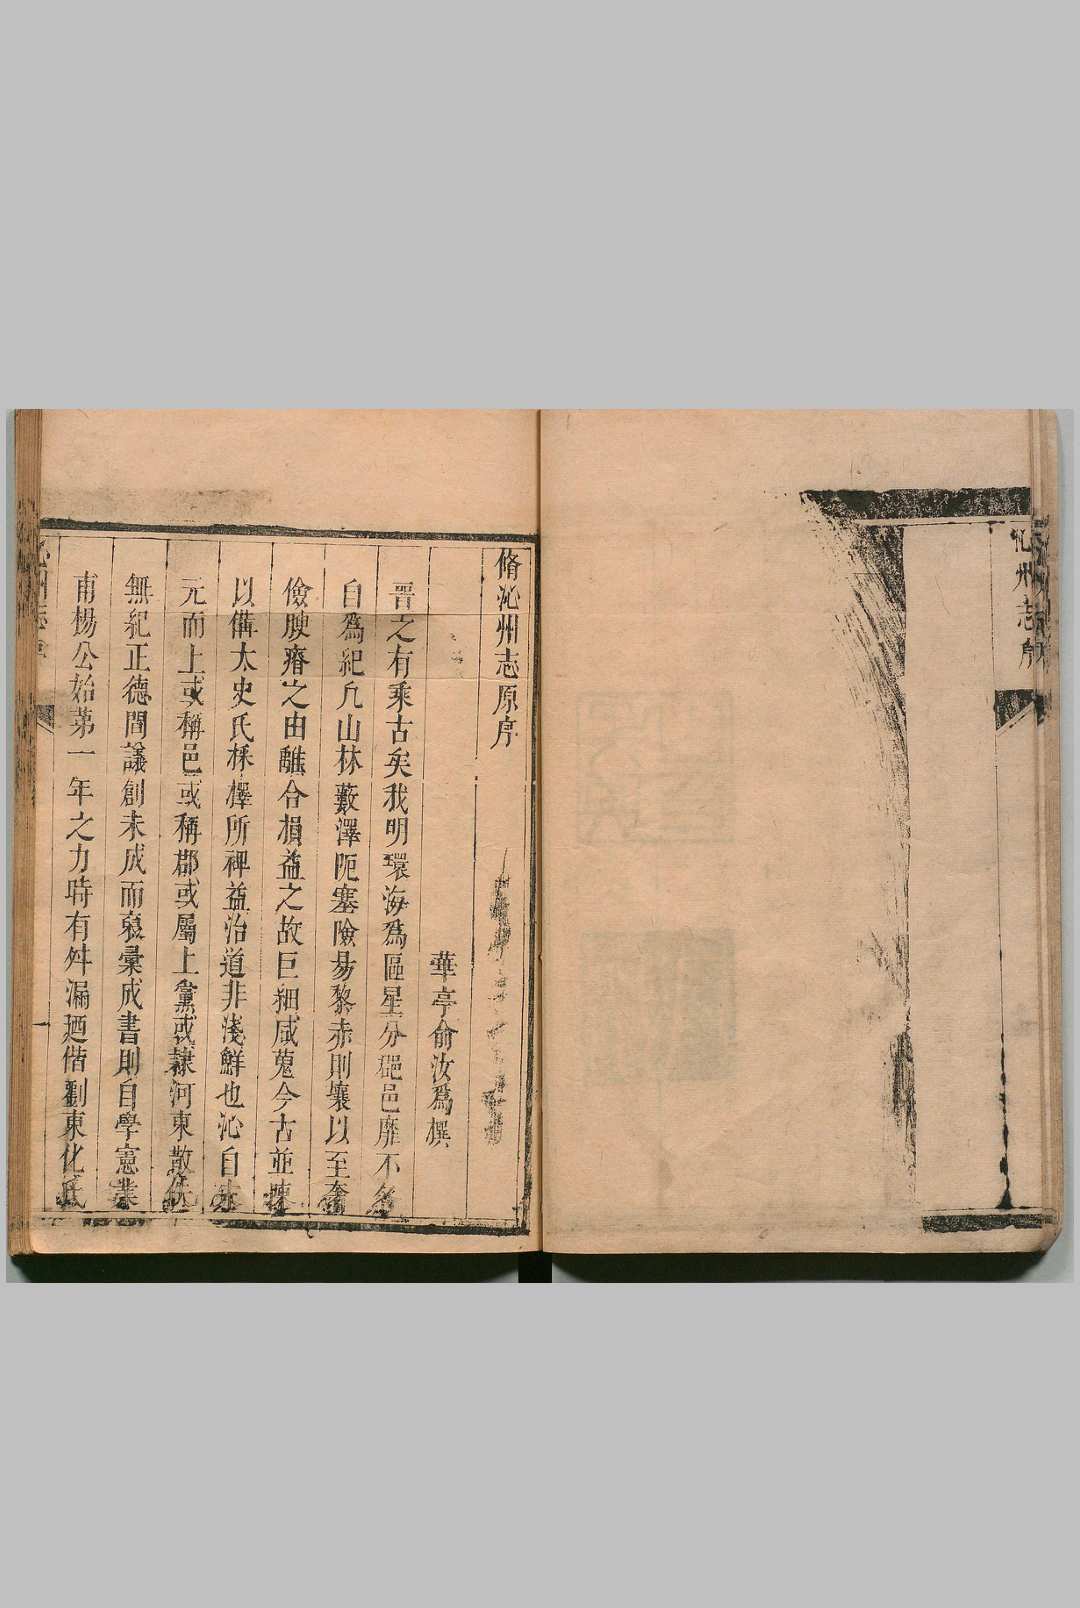 沁州志序
脩沁州志原序
華亭俞汝爲撰
晉之有乗古矣我明環海爲區星分䣕邑靡不各
自爲紀凢山林藪澤阨塞險昜黎赤則壤以至奢
儉腴瘠之由離合損益之故巨細咸蒐今古並陳
以偹太史氏採擇所裨益治道非淺鮮也沁自
元而上或稱邑或稱郡或屬上黨或隸河東散佚
無紀正德間議創未成而裒彚成書則自學憲業
甫楊公始苐一年之力時有舛漏廼偕劉東化氏
沁州志序